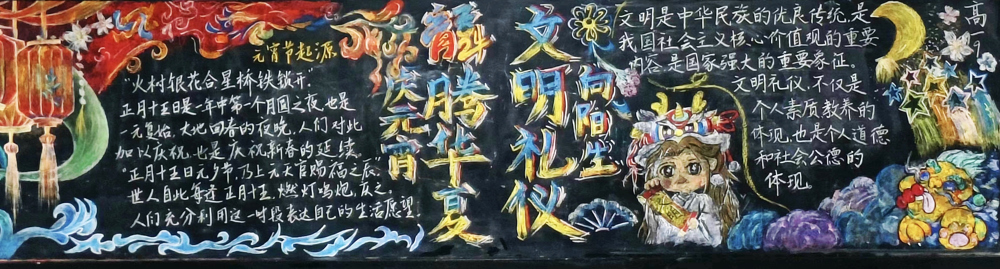 元宵节起源
"火树银花合,星桥铁锁开"
正月十五日是一年中第一个月圆之夜,也是
一元复始,大地回春的夜晚,人们对此
加以庆祝,也是庆祝新春的延续。
"正月十五日元夕节,乃上元天官赐福之辰,
世人自此每逢正月十五,燃灯鸣炮,庆之。
人们充分利用这一时段表达自己的生活愿望。
龙腾华夏
庆元宵
文明礼仪
向阳生
文明是中华民族的优良传统,是
我国社会主义核心价值观的重要
内容,是国家强大的重要象征。
文明礼仪,不仅是
个人素质教养的
体现,也是个人道德
和社会公德的
体现
高一